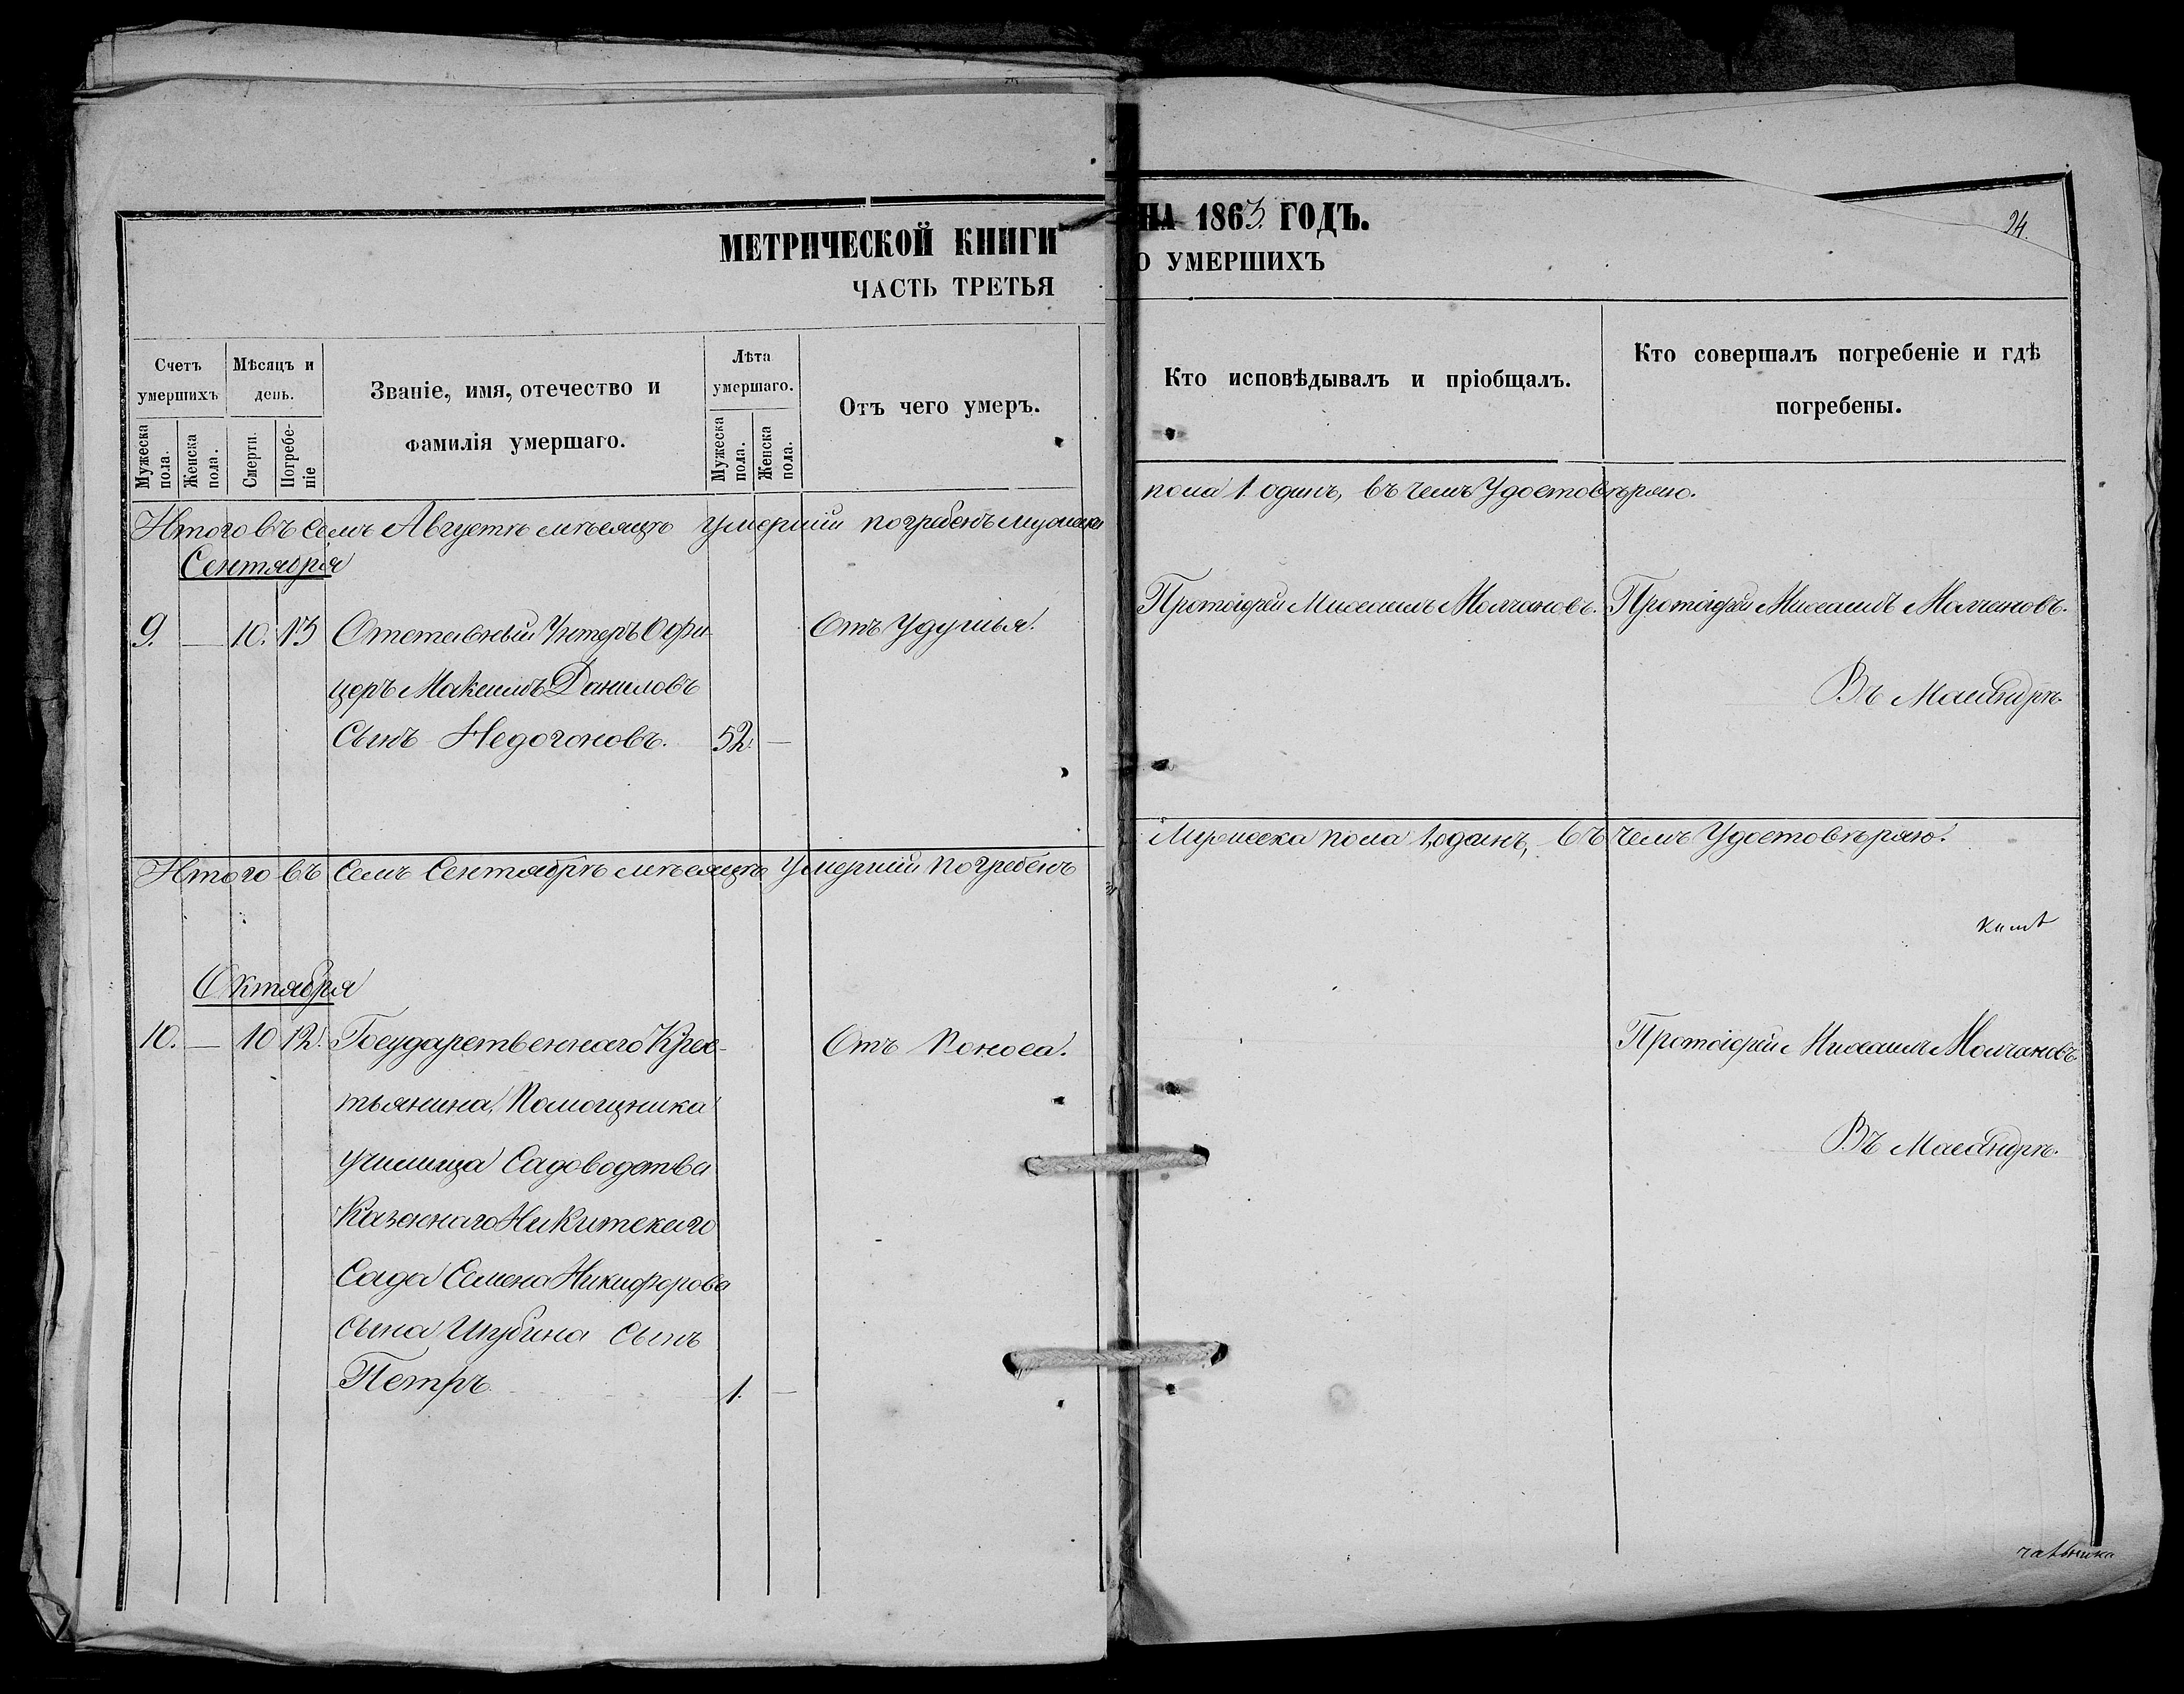 МЕТРИЧЕСКОЙ КНИГИ НА 1863. ГОДЪ.
24.
ЧАСТЬ ТРЕТЬЯ О УМЕРШИХЪ
Счетъ умершихъ
Мужеска пола.
Женска пола.
Мѣсяцъ и день.
Смерти.
Погребе-
ніе
Званіе, имя, отечество и
фамилія умершаго.
Лѣта умершаго.
Мужеска пола.
Женска пола.
Отъ чего умеръ.
Кто исповѣдывалъ и пріобщалъ.
Кто совершалъ погребеніе и гдѣ
погребены.
Итого въ семъ Августѣ мѣсяцѣ умершій погребенъ мужеска пола 1 одинъ, въ чемъ Удостовѣряю.
Сентября
9. — 10. 13 Отставный Унтеръ Офи- Отъ Удушья. Протоіерей Михаилъ Молчановъ. Протоіерей Михаилъ Молчановъ.
церъ Максимъ Даниловъ Въ Масандрѣ.
Сынъ Недогоновъ. 52. —
Итого въ семъ Сентябрѣ мѣсяцѣ Умершій погребенъ Мужеска пола 1, одинъ, въ чемъ Удостовѣряю.
Октября
10. — 10 12. Государственнаго Крес- Отъ Поноса. Протоіерей Михаилъ Молчановъ.
тьянина, Помощника
училища Садоводства Въ Масандрѣ.
Казеннаго Никитскаго
Сада Семена Никифорова
сына Шубина сынъ
Петръ. 1. —